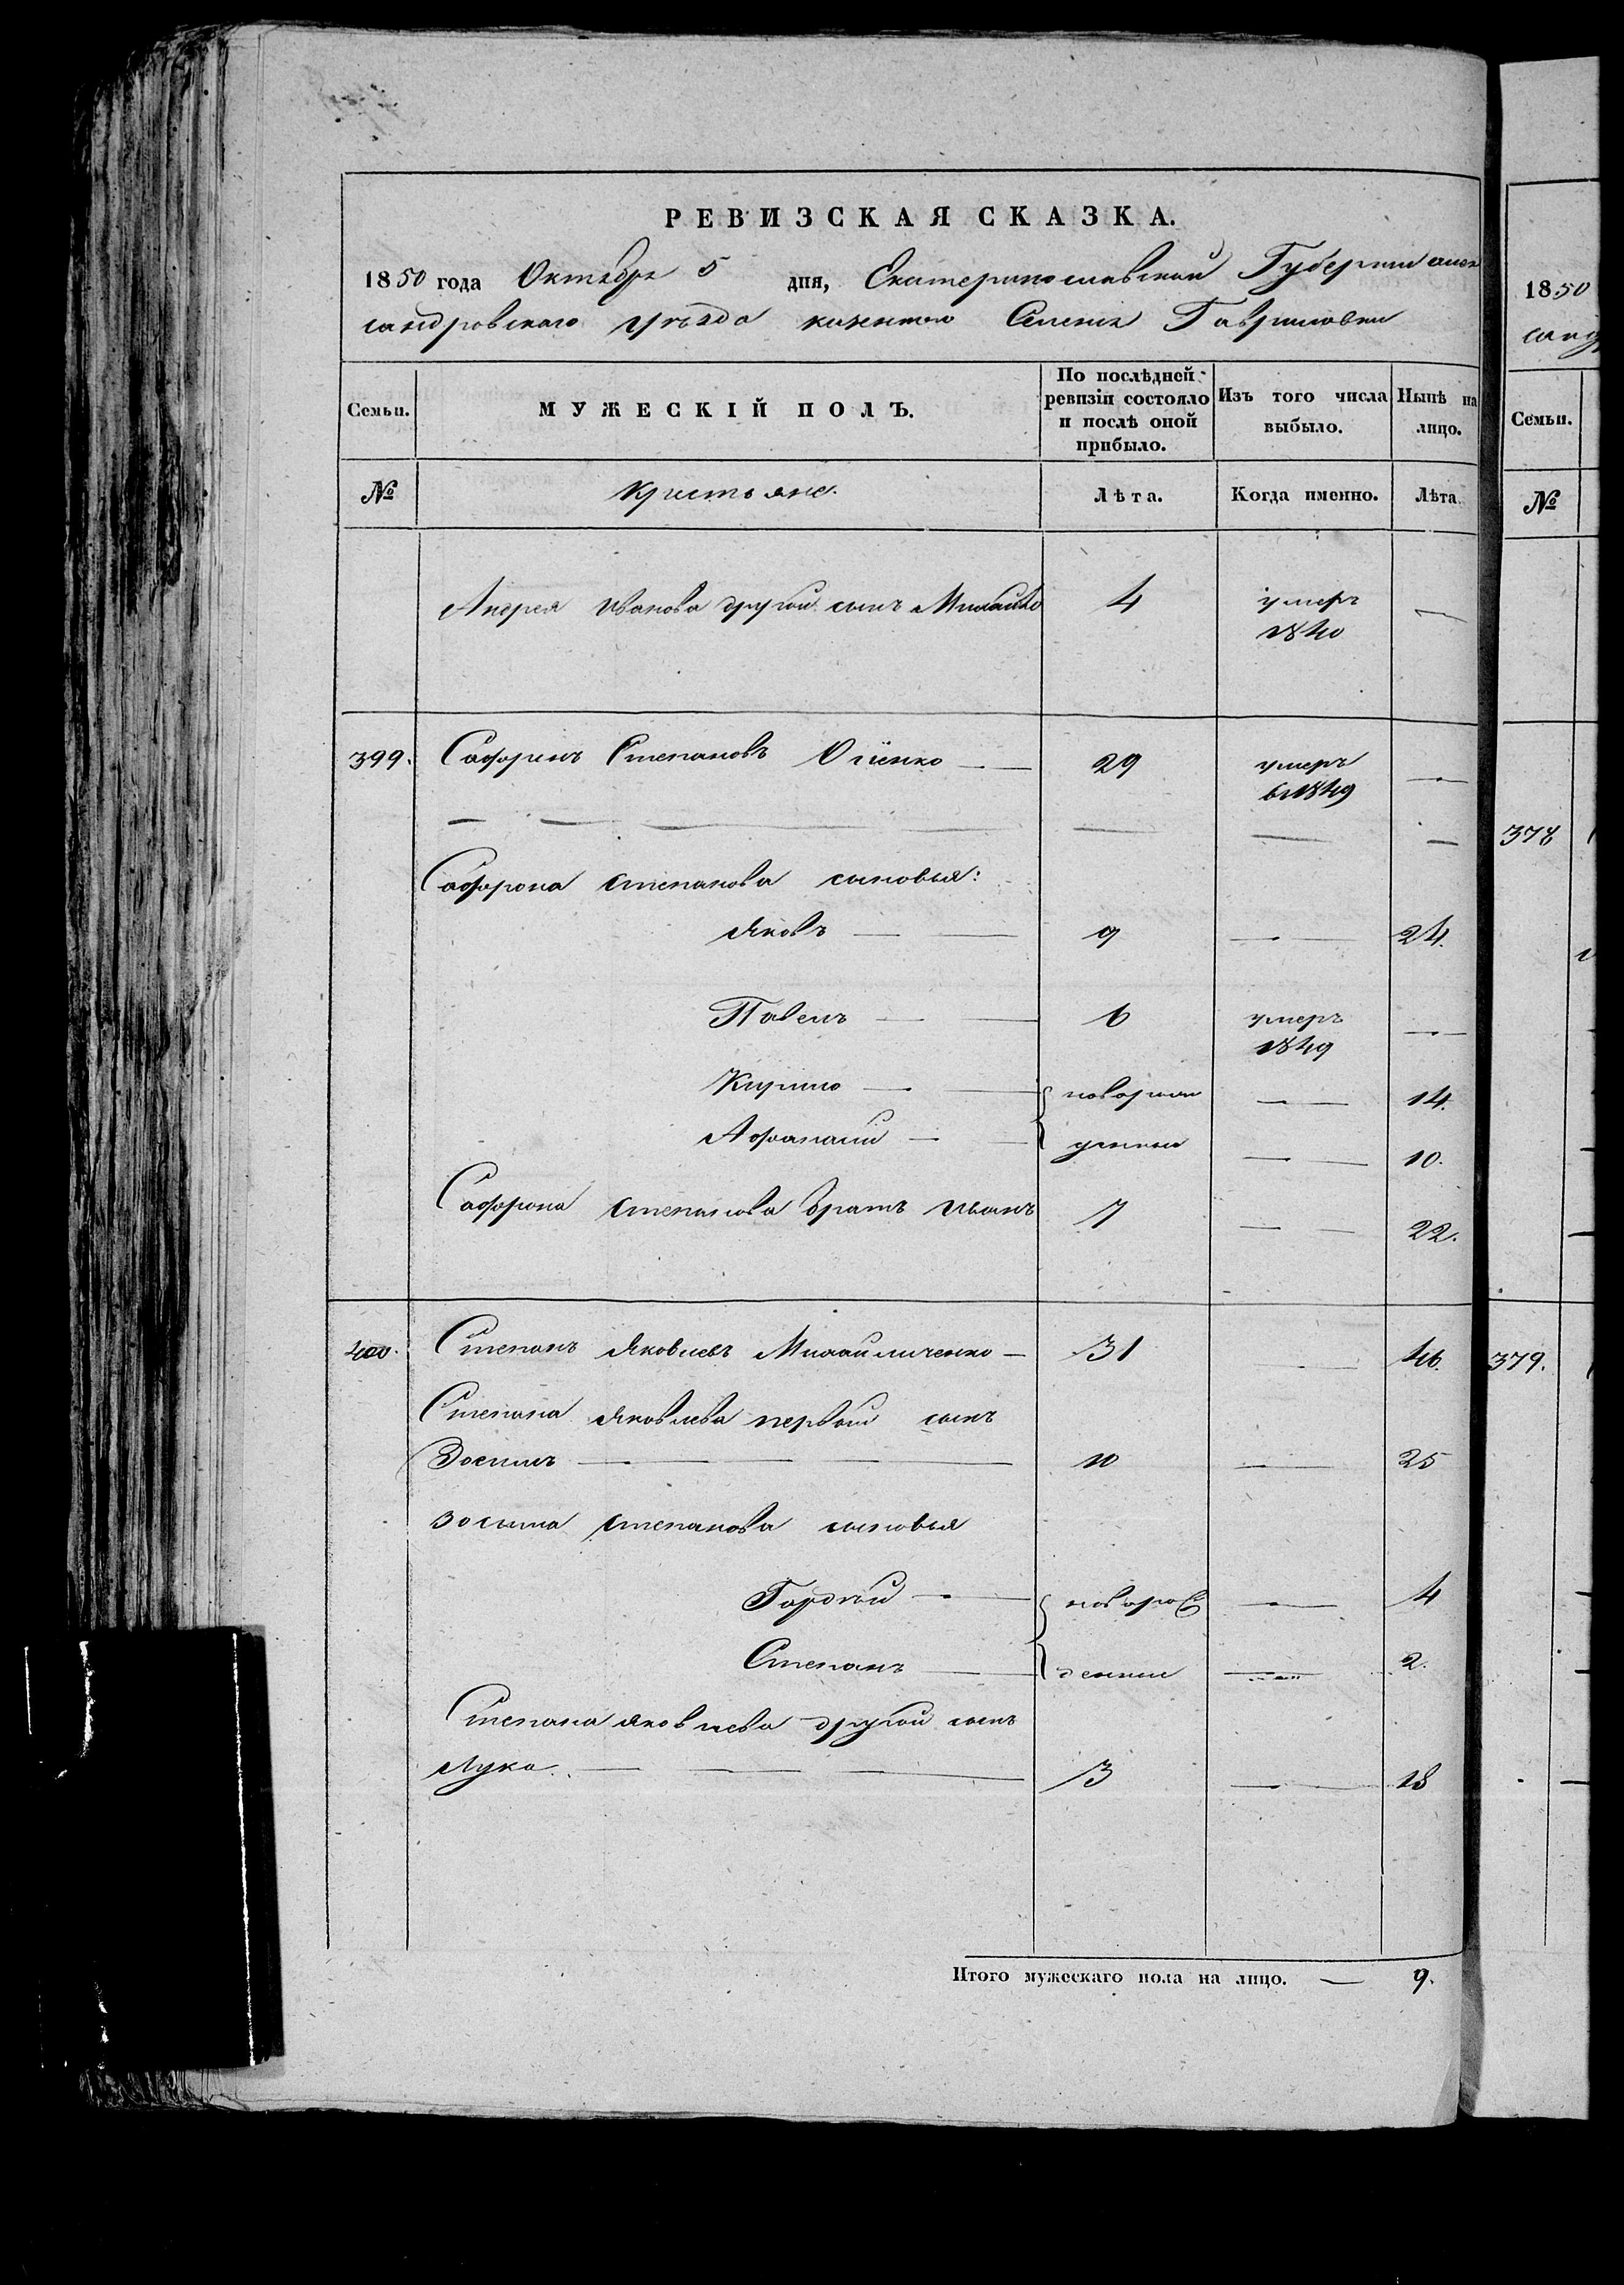 РЕВИЗСКАЯ СКАЗКА.
1850 года Октября 5 дня, Екатеринославской Губернии Алек
сандровскаго уѣзда казеннаго Селенія Гавриловки
Семьи.
МУЖЕСКІЙ ПОЛЪ.
По послѣдней ревизіи состояло и послѣ оной прибыло.
Изъ того числа выбыло.
Нынѣ на лицо.
№ Кристьяне. Лѣта. Когда именно. Лѣта
Андрея Иванова другой сынъ Михайло 4 умеръ 1840 —
399. Сафронъ Степановъ Огіенко — 29 умеръ в 1849 —
Сафрона Степанова сыновья:
Яковъ — 9 — 24.
Павелъ — 6 умеръ 1849 —
Кирило — новорож — 14.
Афанасій — денные — 10.
Сафрона Степанова братъ Иванъ 7 — 22.
400. Степанъ Яковлевъ Михайличенко — 31 — 46.
Степана Яковлева первой сынъ
Зосимъ — 10 — 25
Зосима Степанова сыновья
Гордѣй — новорож — 4
Степанъ — денные — 2.
Степана Яковлева другой сынъ
Лука. — 3 — 18
Итого мужескаго пола на лицо. — 9.
1850
санд
Семьи.
№
378
379.